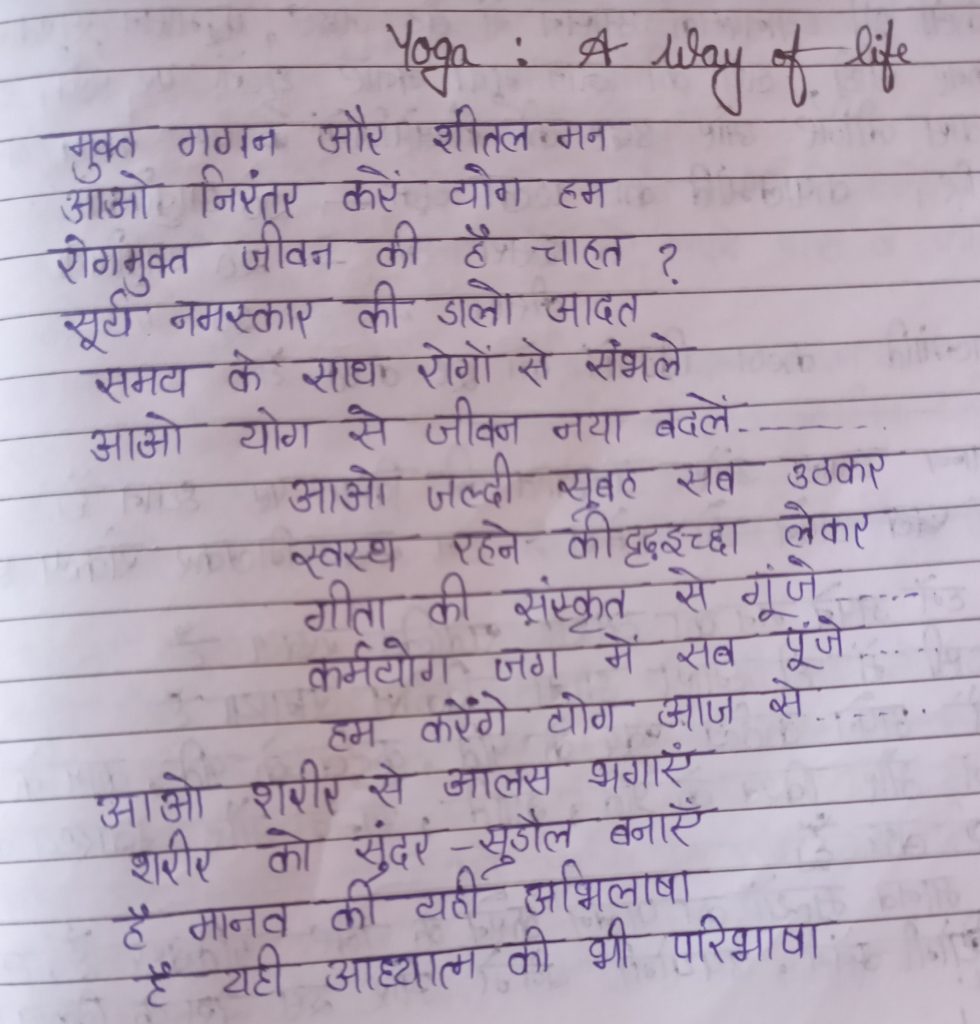 Yoga : A way of life
मुक्त गगन और शीतल मन
आओ निरंतर करें योग हम
रोगमुक्त जीवन की है चाहत ?
सूर्य नमस्कार की डालो आदत
समय के साथ रोगों से संभले
आओ योग से जीवन नया बदलें.........
आओ जल्दी सुबह सब उठकर
स्वस्थ रहने की दृढ़इच्छा लेकर
गीता की संस्कृत से गूंजे......
कर्मयोग जग में सब पूंजे.....
हम करेंगे योग आज से.......
आओ शरीर से आलस भगाएँ
शरीर को सुंदर -सुडौल बनाएँ
है मानव की यही अभिलाषा
है यही आध्यात्म की भी परिभाषा